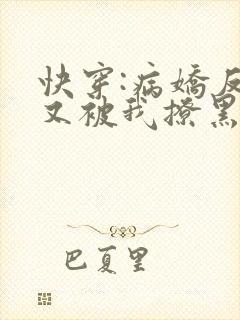 快穿:病嬌反
又被我撩黑
巴夏里